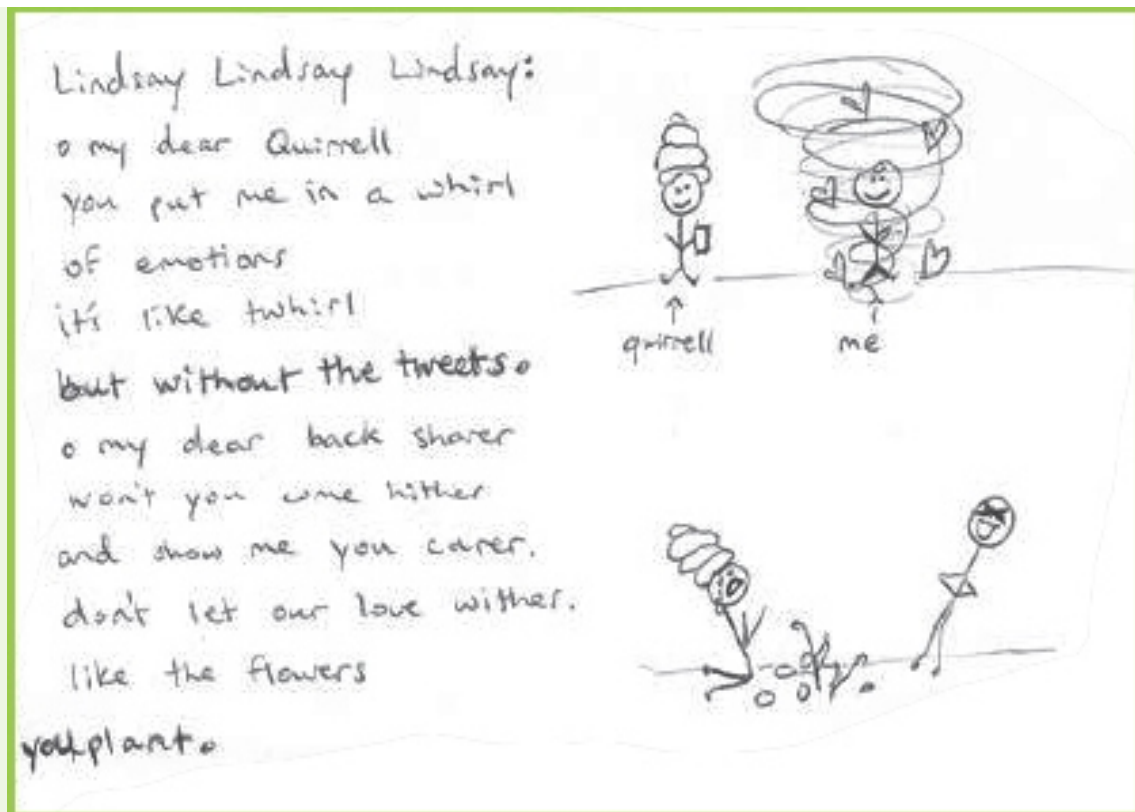 Lindsay Lindsay Lindsay:
o my dear Quirrell
you put me in a whirl
of emotions
it's like twhirl
but without the tweets.
o my dear back sharer
won't you come hither
and show me you carer.
don't let our love wither.
like the flowers
you plant.
quirrell
me